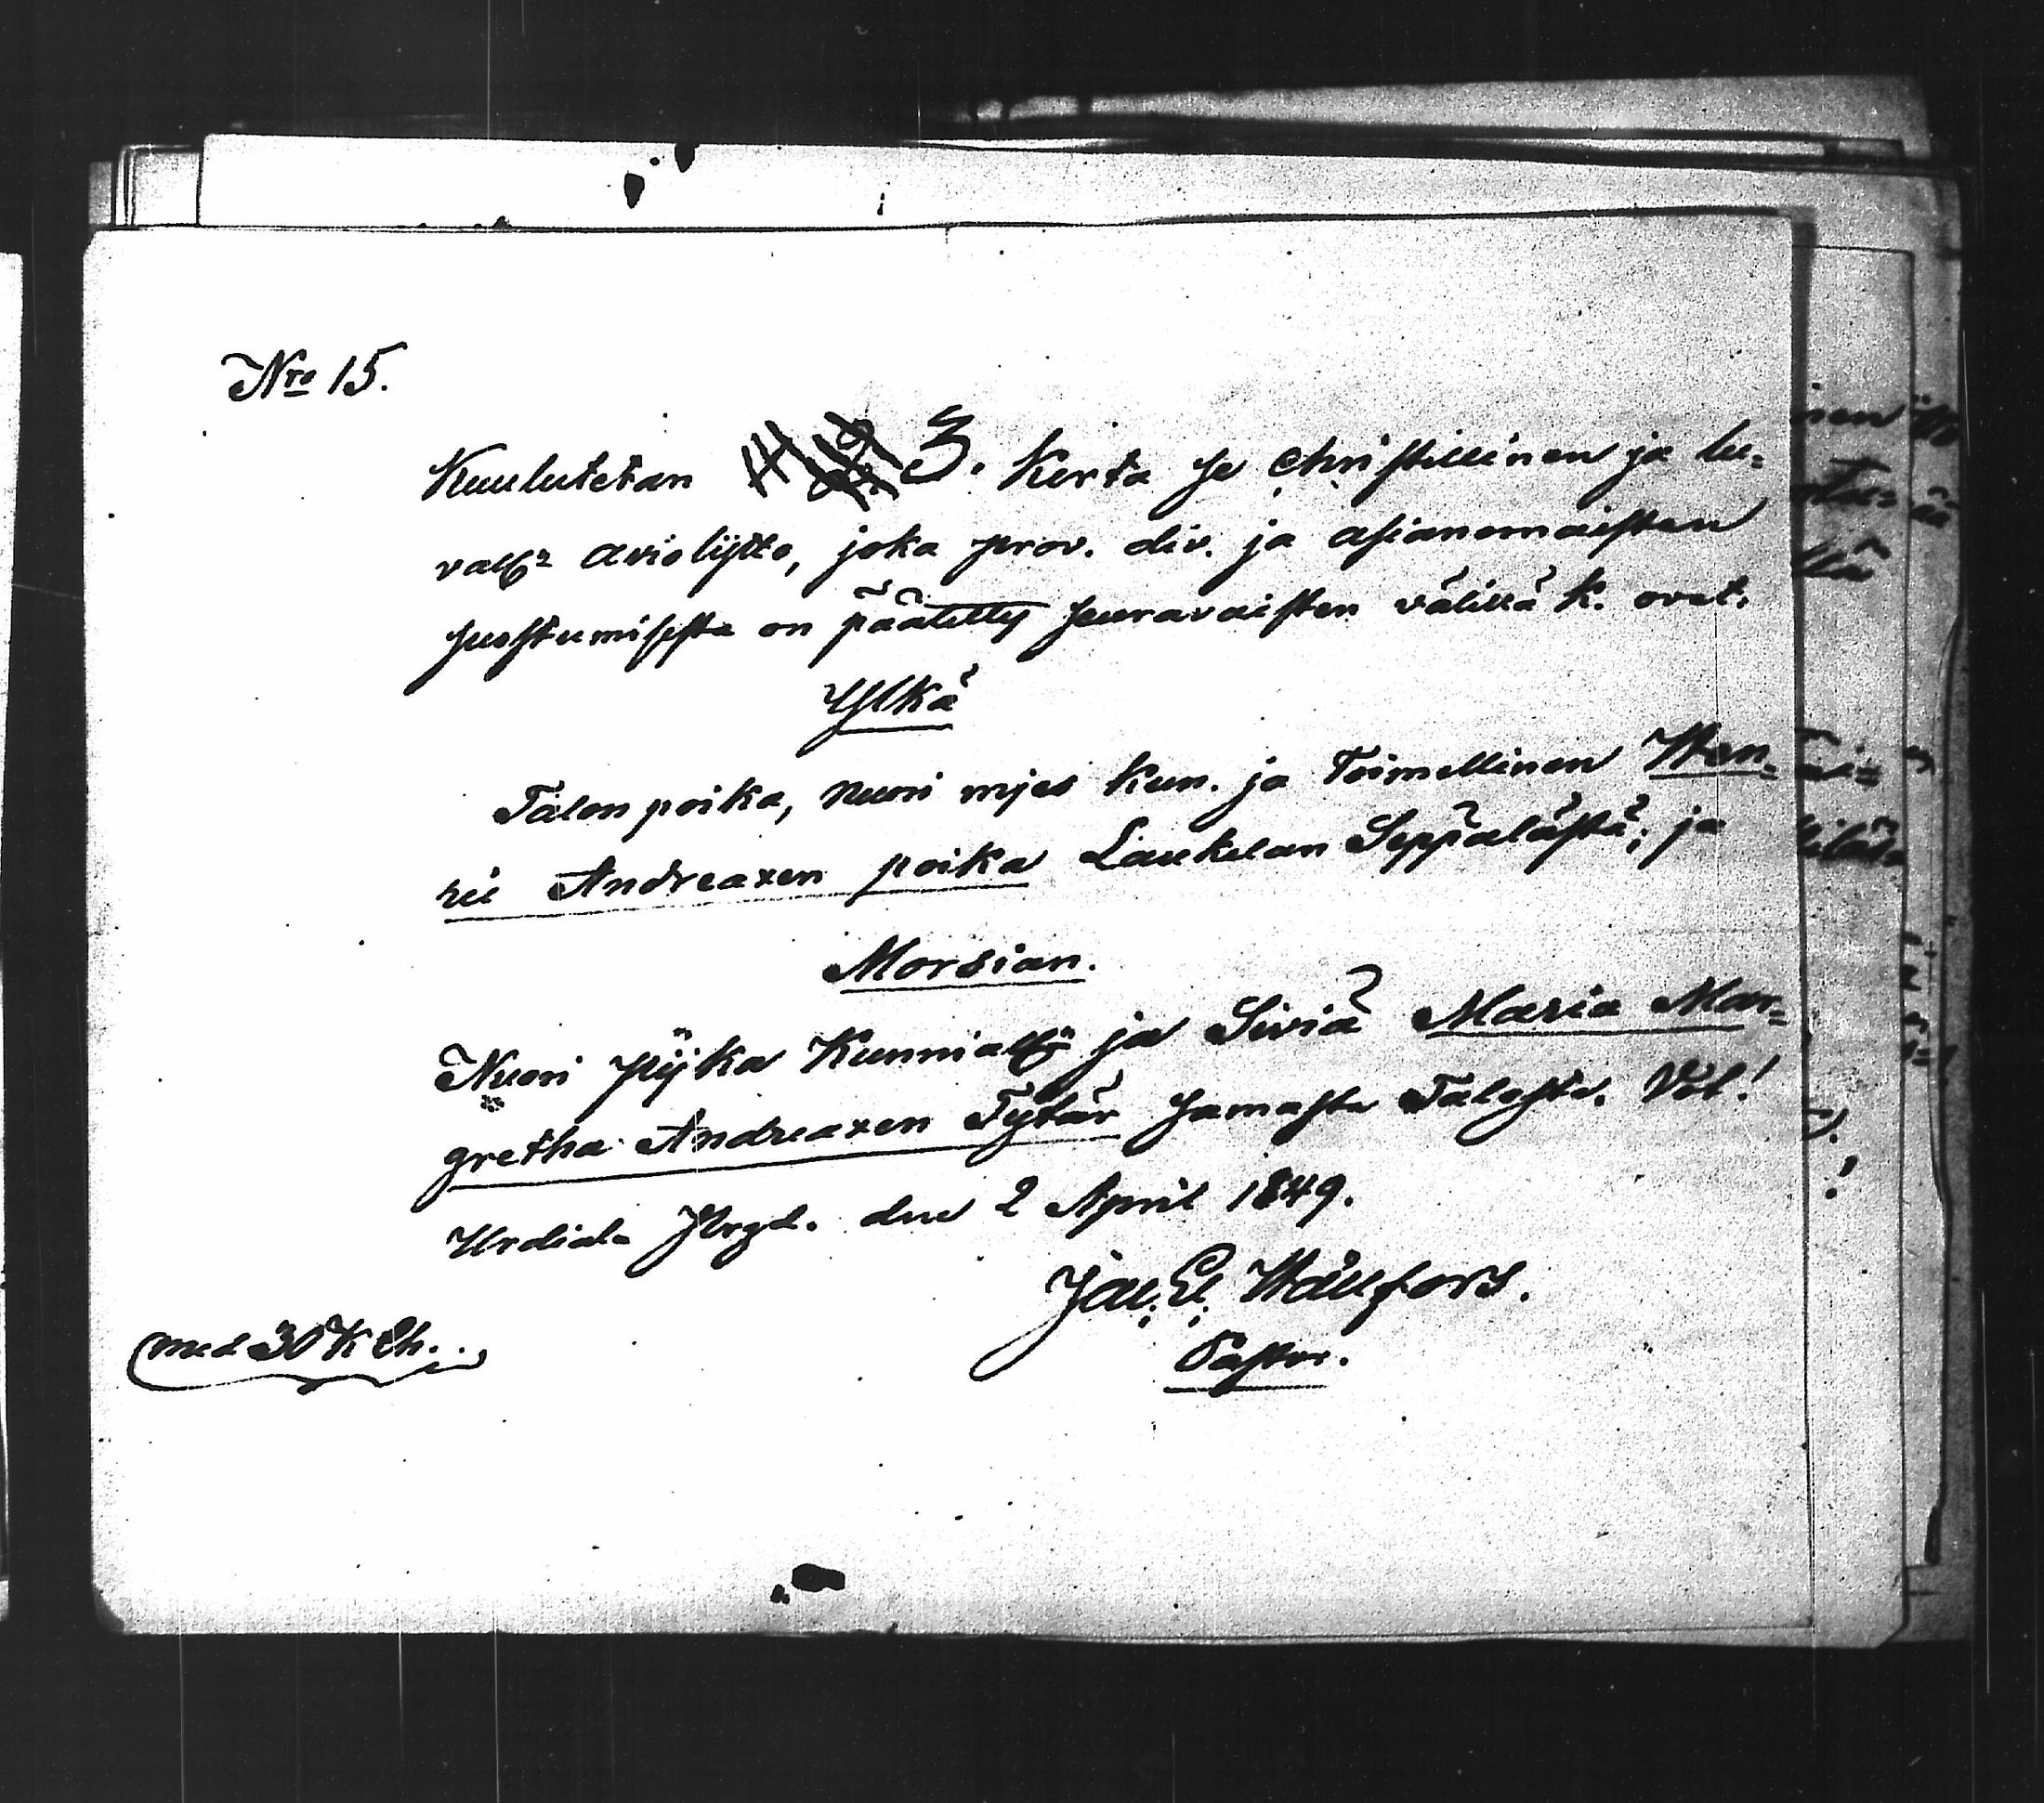 Nro 15.
Kuulutetan 3. Kerta se christillinen ja lu=
vall: aviolijtto, joka prov. div. ja asianomaisten
suostumisesta on päätetty seuravaisten välillä k. ovat.
Ylkä
Talonpoika, nuori mjes kun. ja Toimellinen Hen=
rik Andreaxen poika Laukelan Seppälästä; ja
Morsian.
Nuori pijka Kunniall: ja Siviä Maria Mar=
gretha Andreaxen Tytär samasta Talosta. Vot!
Urdiala Prgd. den 2 April 1849.
Jac. E. Hällfors.
Pastor.
med 30 K